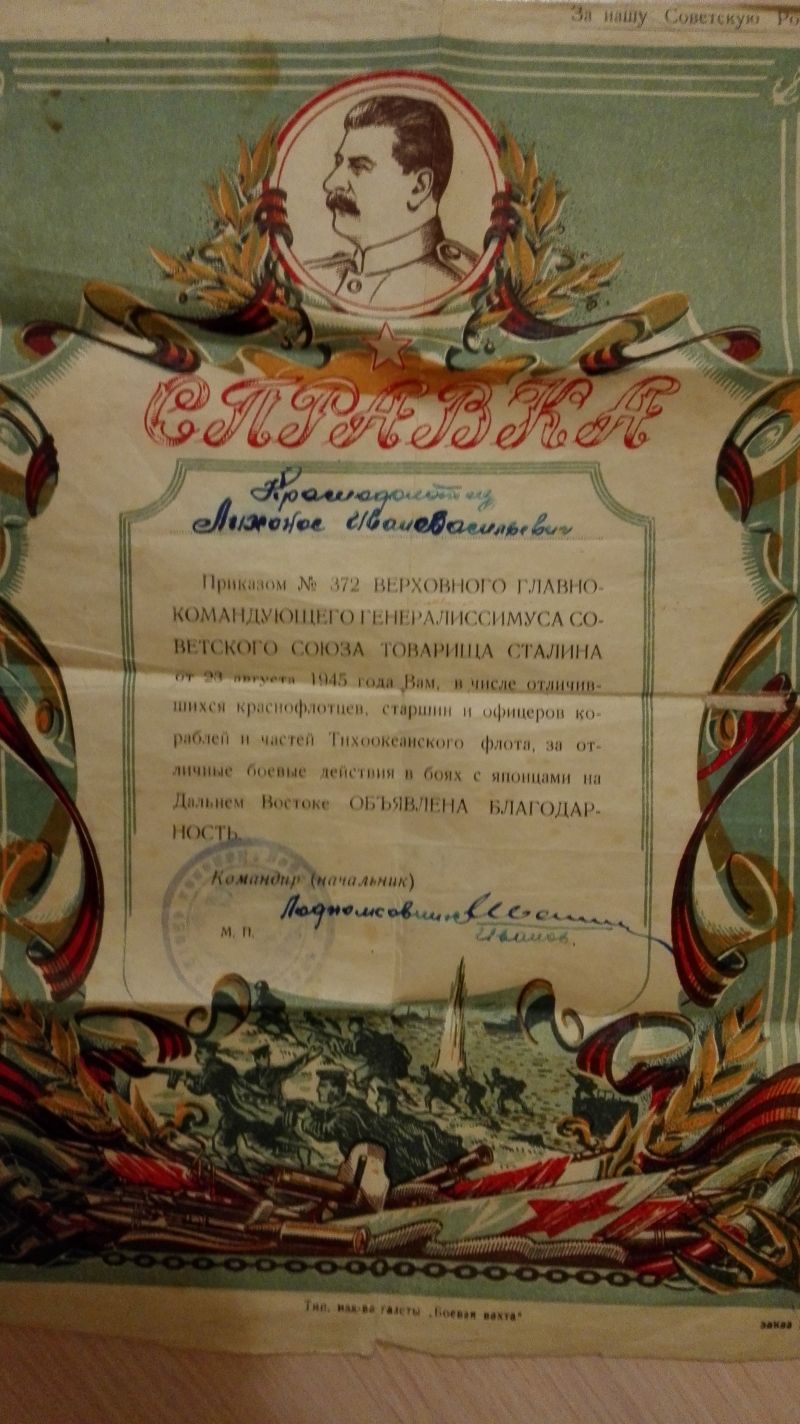 За нашу Советскую Ро
СПРАВКА
Краснофлотец
Иван Васильевич
Приказом № 372 ВЕРХОВНОГО ГЛАВНО-
КОМАНДУЮЩЕГО ГЕНЕРАЛИССИМУСА СО-
ВЕТСКОГО СОЮЗА ТОВАРИЩА СТАЛИНА
от 23 августа 1945 года Вам, в числе отличив-
шихся краснофлотцев, старшин и офицеров ко-
раблей и частей Тихоокеанского флота, за от-
личные боевые действия в боях с японцами на
Дальнем Востоке ОБЪЯВЛЕНА БЛАГОДАР-
НОСТЬ.
Командир (начальник)
Подполковник
М. П.
Иванов.
Тип. изд-ва газеты „Боевая вахта“
заказ